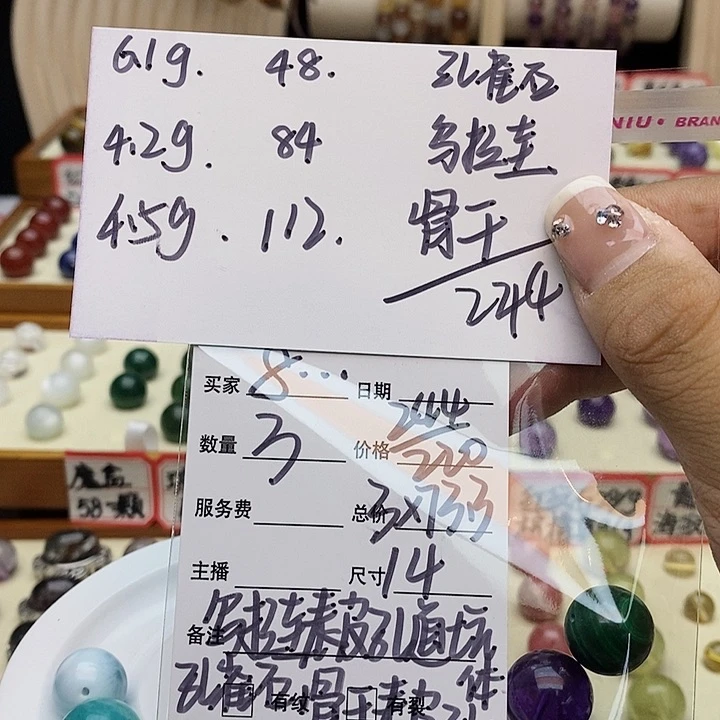 6.1g. 48. 孔雀石
4.2g. 84 乌拉圭
4.5g. 112. 骨干
244
NIU • BRAN
买家 8... 日期
数量 3 价格 244
220
服务费 总价 3x733
主播 尺寸 14
备注 乌拉圭表皮孔道坑
孔雀石 骨干表皮 体
有纹 有裂
魔盒
58一颗